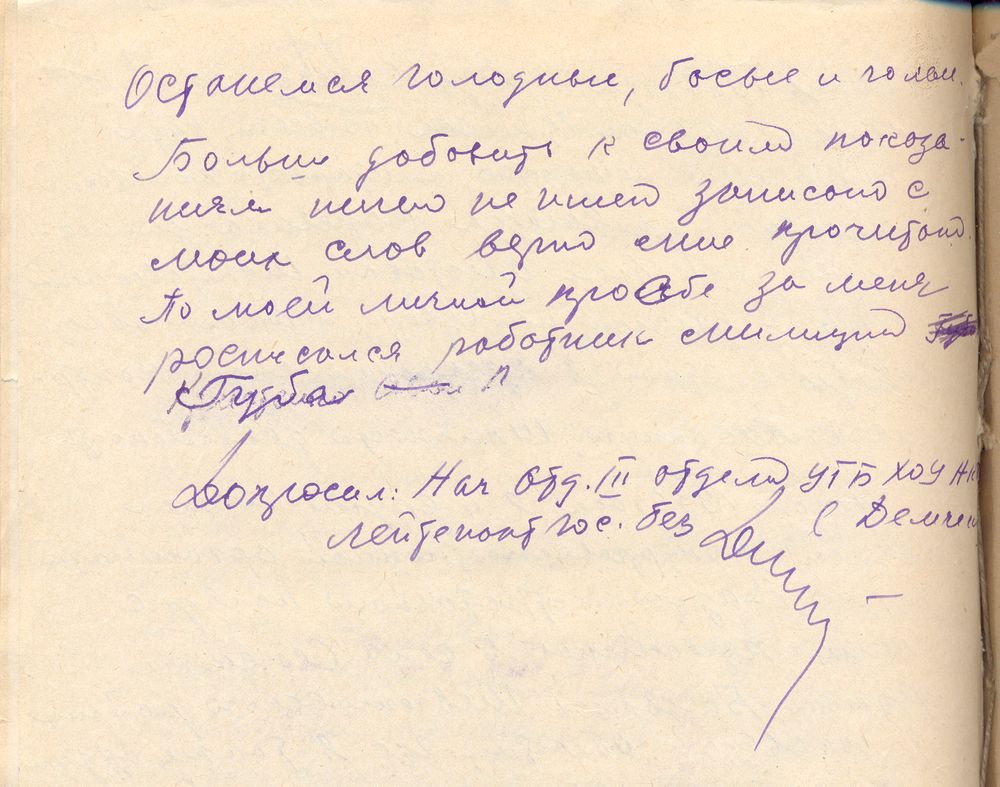 Останемся голодные, босые и голы.
Больши добовить к своим показа-
ниям ничего не имею записоно с
моих слов верно мне прочитоно.
По моей личной прозьбе за меня
росписался роботник милиции
Губа
Допросил: Нач Отд. III отдела УГБ ХОУ НК
лейтенонт гос. без (Демчен